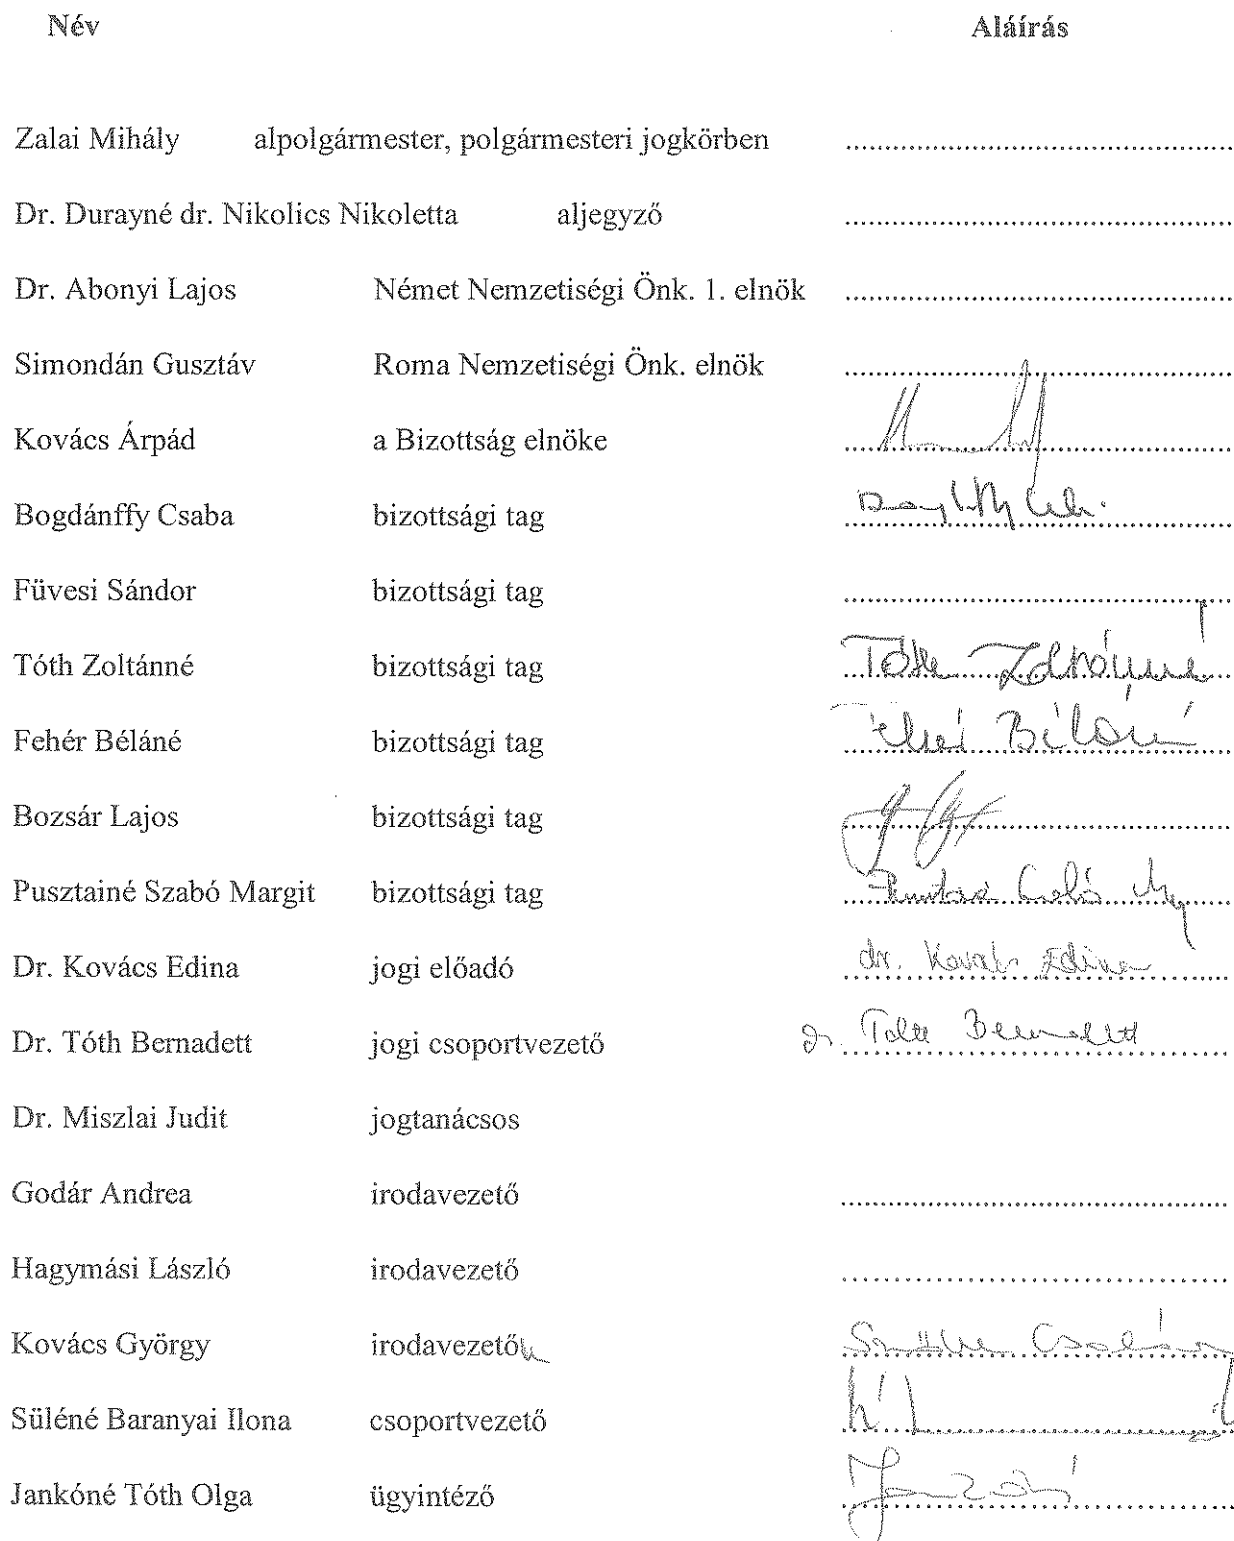 Név Aláírás
Zalai Mihály alpolgármester, polgármesteri jogkörben
Dr. Durayné dr. Nikolics Nikoletta aljegyző
Dr. Abonyi Lajos Német Nemzetiségi Önk. 1. elnök
Simondán Gusztáv Roma Nemzetiségi Önk. elnök
Kovács Árpád a Bizottság elnöke
Bogdánffy Csaba bizottsági tag
Füvesi Sándor bizottsági tag
Tóth Zoltánné bizottsági tag Tóth Zoltánné
Fehér Béláné bizottsági tag Fehér Béláné
Bozsár Lajos bizottsági tag
Pusztainé Szabó Margit bizottsági tag
Dr. Kovács Edina jogi előadó dr. Kovács Edina
Dr. Tóth Bernadett jogi csoportvezető dr. Tóth Bernadett
Dr. Miszlai Judit jogtanácsos
Godár Andrea irodavezető
Hagymási László irodavezető
Kovács György irodavezető
Süléné Baranyai Ilona csoportvezető
Jankóné Tóth Olga ügyintéző